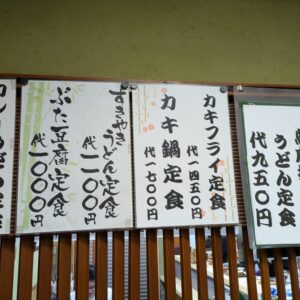 うどん定食
代九五〇円
カキフライ定食
代一四五〇円
カキ鍋定食
代一七〇〇円
すきやき
うどん定食
代一二〇〇円
ぶた豆腐定食
代一〇〇〇円